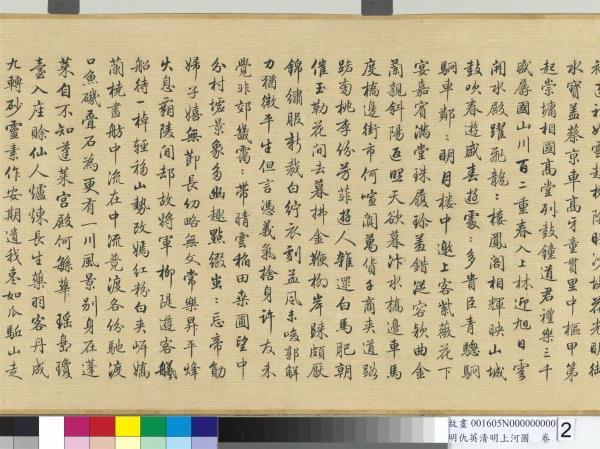 水寶蓋蔡京車高牙童貫里中樞甲第
起崇墉相國高堂列鼓鐘道君禮樂三千
盛孱國山川百二重春入上林迎旭日雲
開水殿躍飛龍:樓鳳閣相輝映山城
鼓吹春遊盛春遊處:多貴臣青驄駉
駉車鄰:明月樓中邀上客紫薇花下
宴嘉賓滿堂珠履珍羞錯從容欵曲金
蘭親斜陽返照天欲暮汴水橋邊車馬
度橋邊街市何喧闐萬貨子商夾道路
南桃李份芳菲遊人雜遝白馬肥朝
催玉勒花間去暮拂金鞭柳岸歸頗厭
錦繡服新裁白紵衣劇孟風未峻郭解
力猶微平生但言憑義氣捨身許友未
覺非郊畿靄:帶晴雲稻田桑圃望中
分村墟景象多幽趣點綴出:忘帝勛
婦子嬉無節長幼略無文常樂昇平烽
火息覇陵閒却故將軍柳隄遊客艤
船待一棹輕移山勢改嫣紅粉白夾嬌
蘭橈畫舫中流在中流競渡各份馳渡
口魚磯疊石為更有一川風景别身在蓬
萊自不知蓬萊宮殿何繇華瑤島瓊
臺入座賒仙人爐煉長生藥羽客丹成
九轉砂靈素作安期遺我棗如瓜駈山走
故畫 001605N000000000
明仇英清明上河圖 卷
2